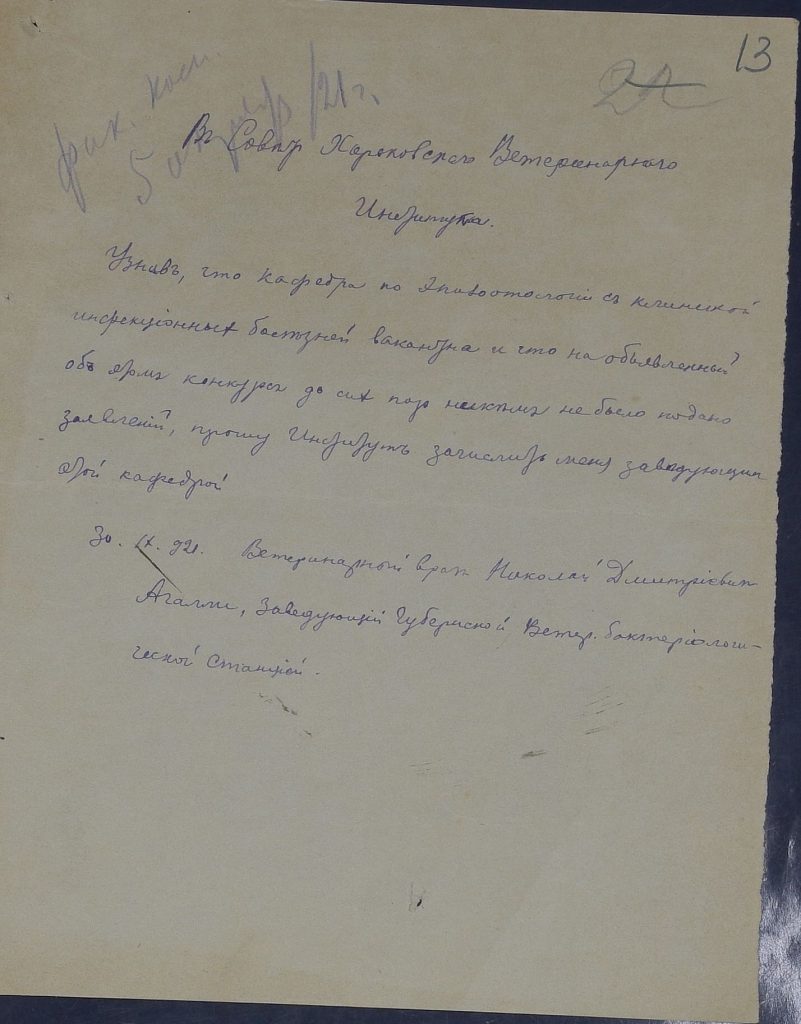 13
фак. ком.
5 /21 г.
Въ Совѣтъ Харьковскаго Ветеринарнаго
Института.
Узнавъ, что кафедра по Эпизоотологіи съ клиникой
инфекціонныхъ болѣзней вакантна и что на объявленный
объ этомъ конкурсъ до сихъ поръ никѣмъ не было подано
заявленій, прошу Институтъ зачислить меня заведующим
этой кафедрой
30. IX. 921. Ветеринарный врач Николай Дмитріевич
Агалли, Заведующій Губернской Ветер. бактеріологи-
ческой Станціей.